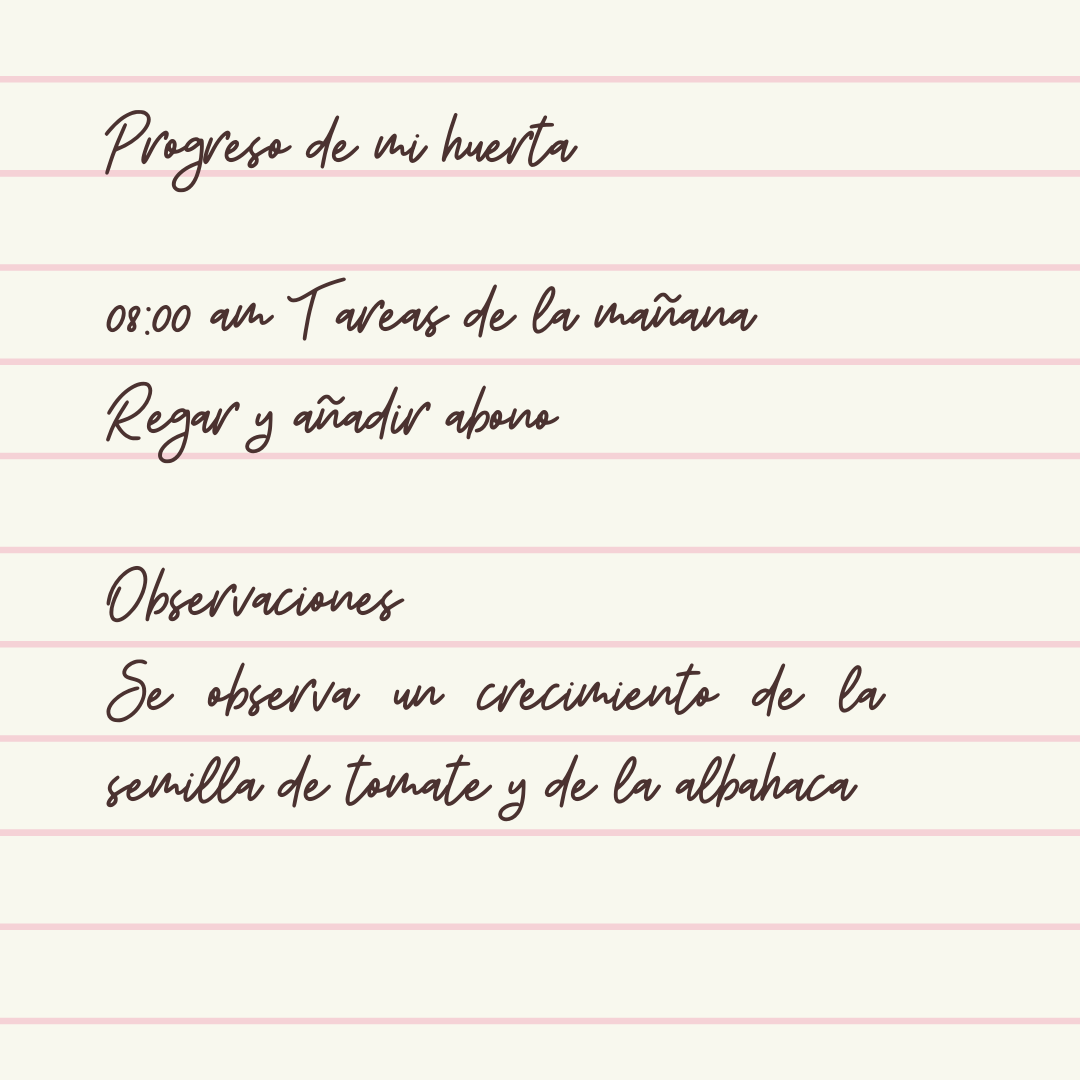 Progreso de mi huerta
08:00 am Tareas de la mañana
Regar y añadir abono
Observaciones
Se observa un crecimiento de la
semilla de tomate y de la albahaca